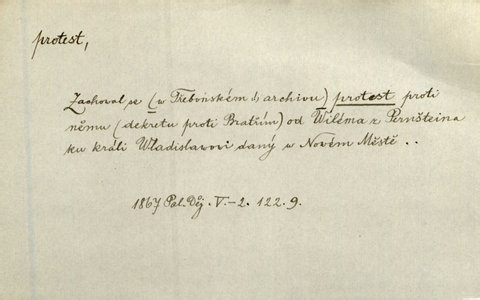 protest,
Zachoval se (w Třeboňském archivu) protest proti
němu (dekretu proti Bratřím) od Wiléma z Pernšteina
ku králi Wladislawowi daný w Nowém Městě . .
1867 Pal. Děj. V.-2. 122.9.